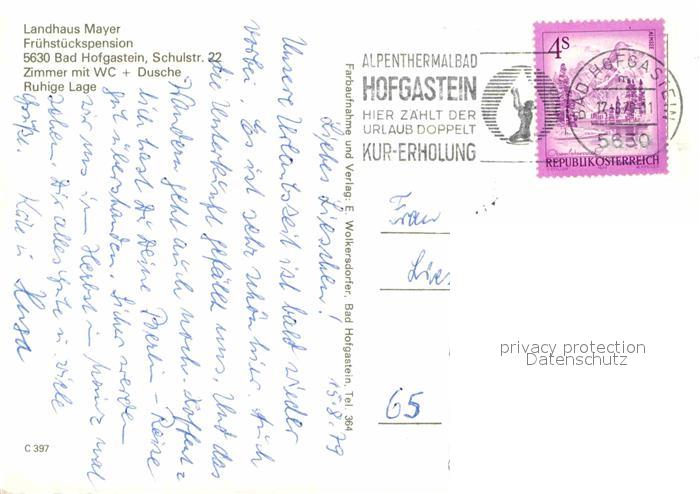 Landhaus Mayer
Frühstückspension
5630 Bad Hofgastein, Schulstr. 22
Zimmer mit WC + Dusche
Ruhige Lage
15.8.79
Liebes Lieschen!
Unsere Urlaubszeit ist bald wieder
vorbei. Es ist sehr schön hier. Auch
die Unterkunft gefällt uns. Und das
Wandern geht auch noch. Hoffent=
lich hast Du Deine Berlin-Reise
gut überstanden. Sicher werden
wir uns im Herbst in Mainz mal
sehen. Dir alles Gute u. viele
Grüße.
C 397
Farbaufnahme und Verlag: E. Wolkersdorfer, Bad Hofgastein, Tel. 364
ALPENTHERMALBAD
HOFGASTEIN
HIER ZÄHLT DER
URLAUB DOPPELT
KUR-ERHOLUNG
4S
ALMSEE
REPUBLIK ÖSTERREICH
BAD HOFGASTEIN
5630
Frau
65
privacy protection
Datenschutz